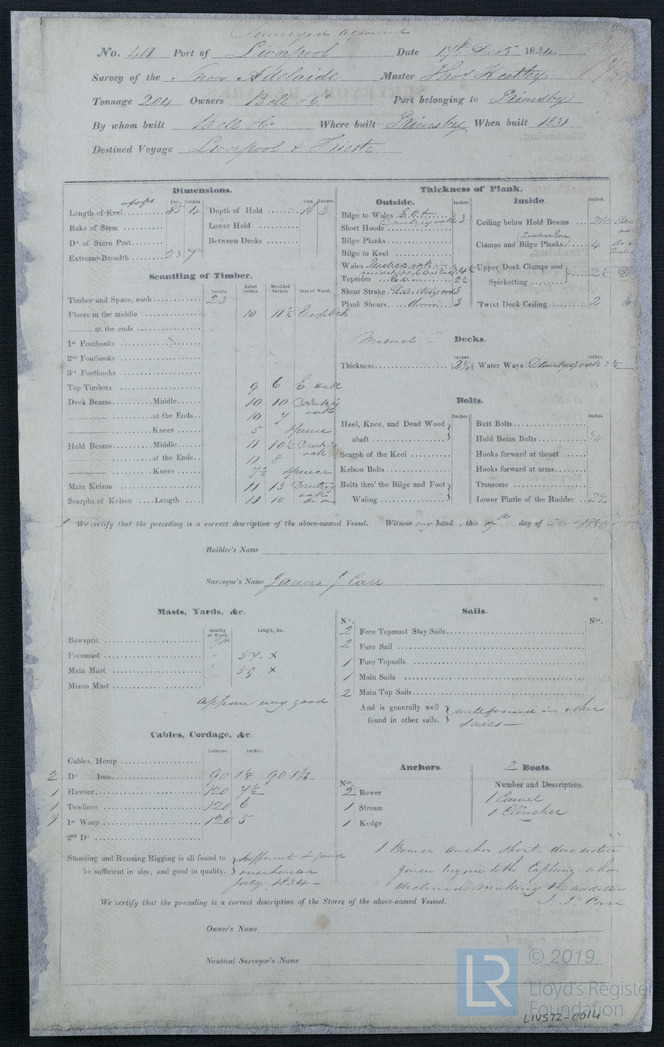 Surveyed
No. Port of Liverpool Date 17th Dec 1834
Survey of the Snow Adelaide Master Thos
Tonnage 204 Owners Port belonging to Grimsby
By whom built Where built Grimsby When built 1831
Destined Voyage Liverpool & Trieste
Dimensions.
Length of Keel
Rake of Stem
Do of Stern Post
Extreme Breadth 23 7
Depth of Hold 16 3
Lower Hold
Between Decks
Scantling of Timber.
Timber and Space, each 23
Floors in the middle 10 11½
at the ends
1st Foothooks
2nd Foothooks
3rd Foothooks
Top Timbers 9 6 E oak
Deck Beams Middle 10 10 Dantzig oak
at the Ends 10 7
Knees 5 Spruce
Hold Beams Middle 11 10½ Dantzig oak
at the Ends 11 8
Knees 7½ Spruce
Main Kelson 11 13 Dantzig oak
Scarphs of Kelson Length 11 10
Thickness of Plank.
Outside.
Bilge to Wales 3
Short Hoods
Bilge Planks
Bilge to Keel
Wales 4½
Topsides 2½
Shear Strake Dantzig oak 3
Plank Shears 3
Inside
Ceiling below Hold Beams 2½
Clamps and Bilge Planks 4
Upper Deck Clamps and Spirketting 2½
Twixt Deck Ceiling 2
Memel Decks.
Thickness Water Ways Dantzig oak 3½
Bolts.
Heel, Knee, and Dead Wood abaft
Scarph of the Keel
Kelson Bolts
Bolts thro' the Bilge and Foot Waling
Butt Bolts
Hold Beam Bolts ¾
Hooks forward at throat
Hooks forward at arms
Transoms
Lower Pintle of the Rudder
We certify that the preceding is a correct description of the above-named Vessel. Witness my hand this 17th day of
Builder's Name
Surveyor's Name James J Carr
Masts, Yards, &c.
Quality of Wood. Length, &c.
Bowsprit
Foremast 57 x
Main Mast 59 x
Mizen Mast
appear very good
Sails.
No.
2 Fore Topmast Stay Sails
2 Fore Sail
1 Fore Topsails
1 Main Sails
2 Main Top Sails
And is generally well found in other sails. well found in other sails
Cables, Cordage, &c.
Fathoms. Inches.
Cables, Hemp
2 Do Iron 90 1⅛ 90 1¼
1 Hawser 120 7½
1 Towlines 120 6
1 1st Warp 120 5
2nd Do
Standing and Running Rigging is all found to be sufficient in size, and good in quality. sufficient & good overhauled July 1834
Anchors.
No.
2 Bower
1 Stream
1 Kedge
2 Boats.
Number and Description.
1 Carvel
1 Clincher
1 Bower anchor short due notice given by me to the Captain who declines making the addition
J J Carr
We certify that the preceding is a correct description of the Stores of the above-named Vessel.
Owner's Name
Nautical Surveyor's Name
LR
© 2019
Lloyd's Register
Foundation
LIV572-0014